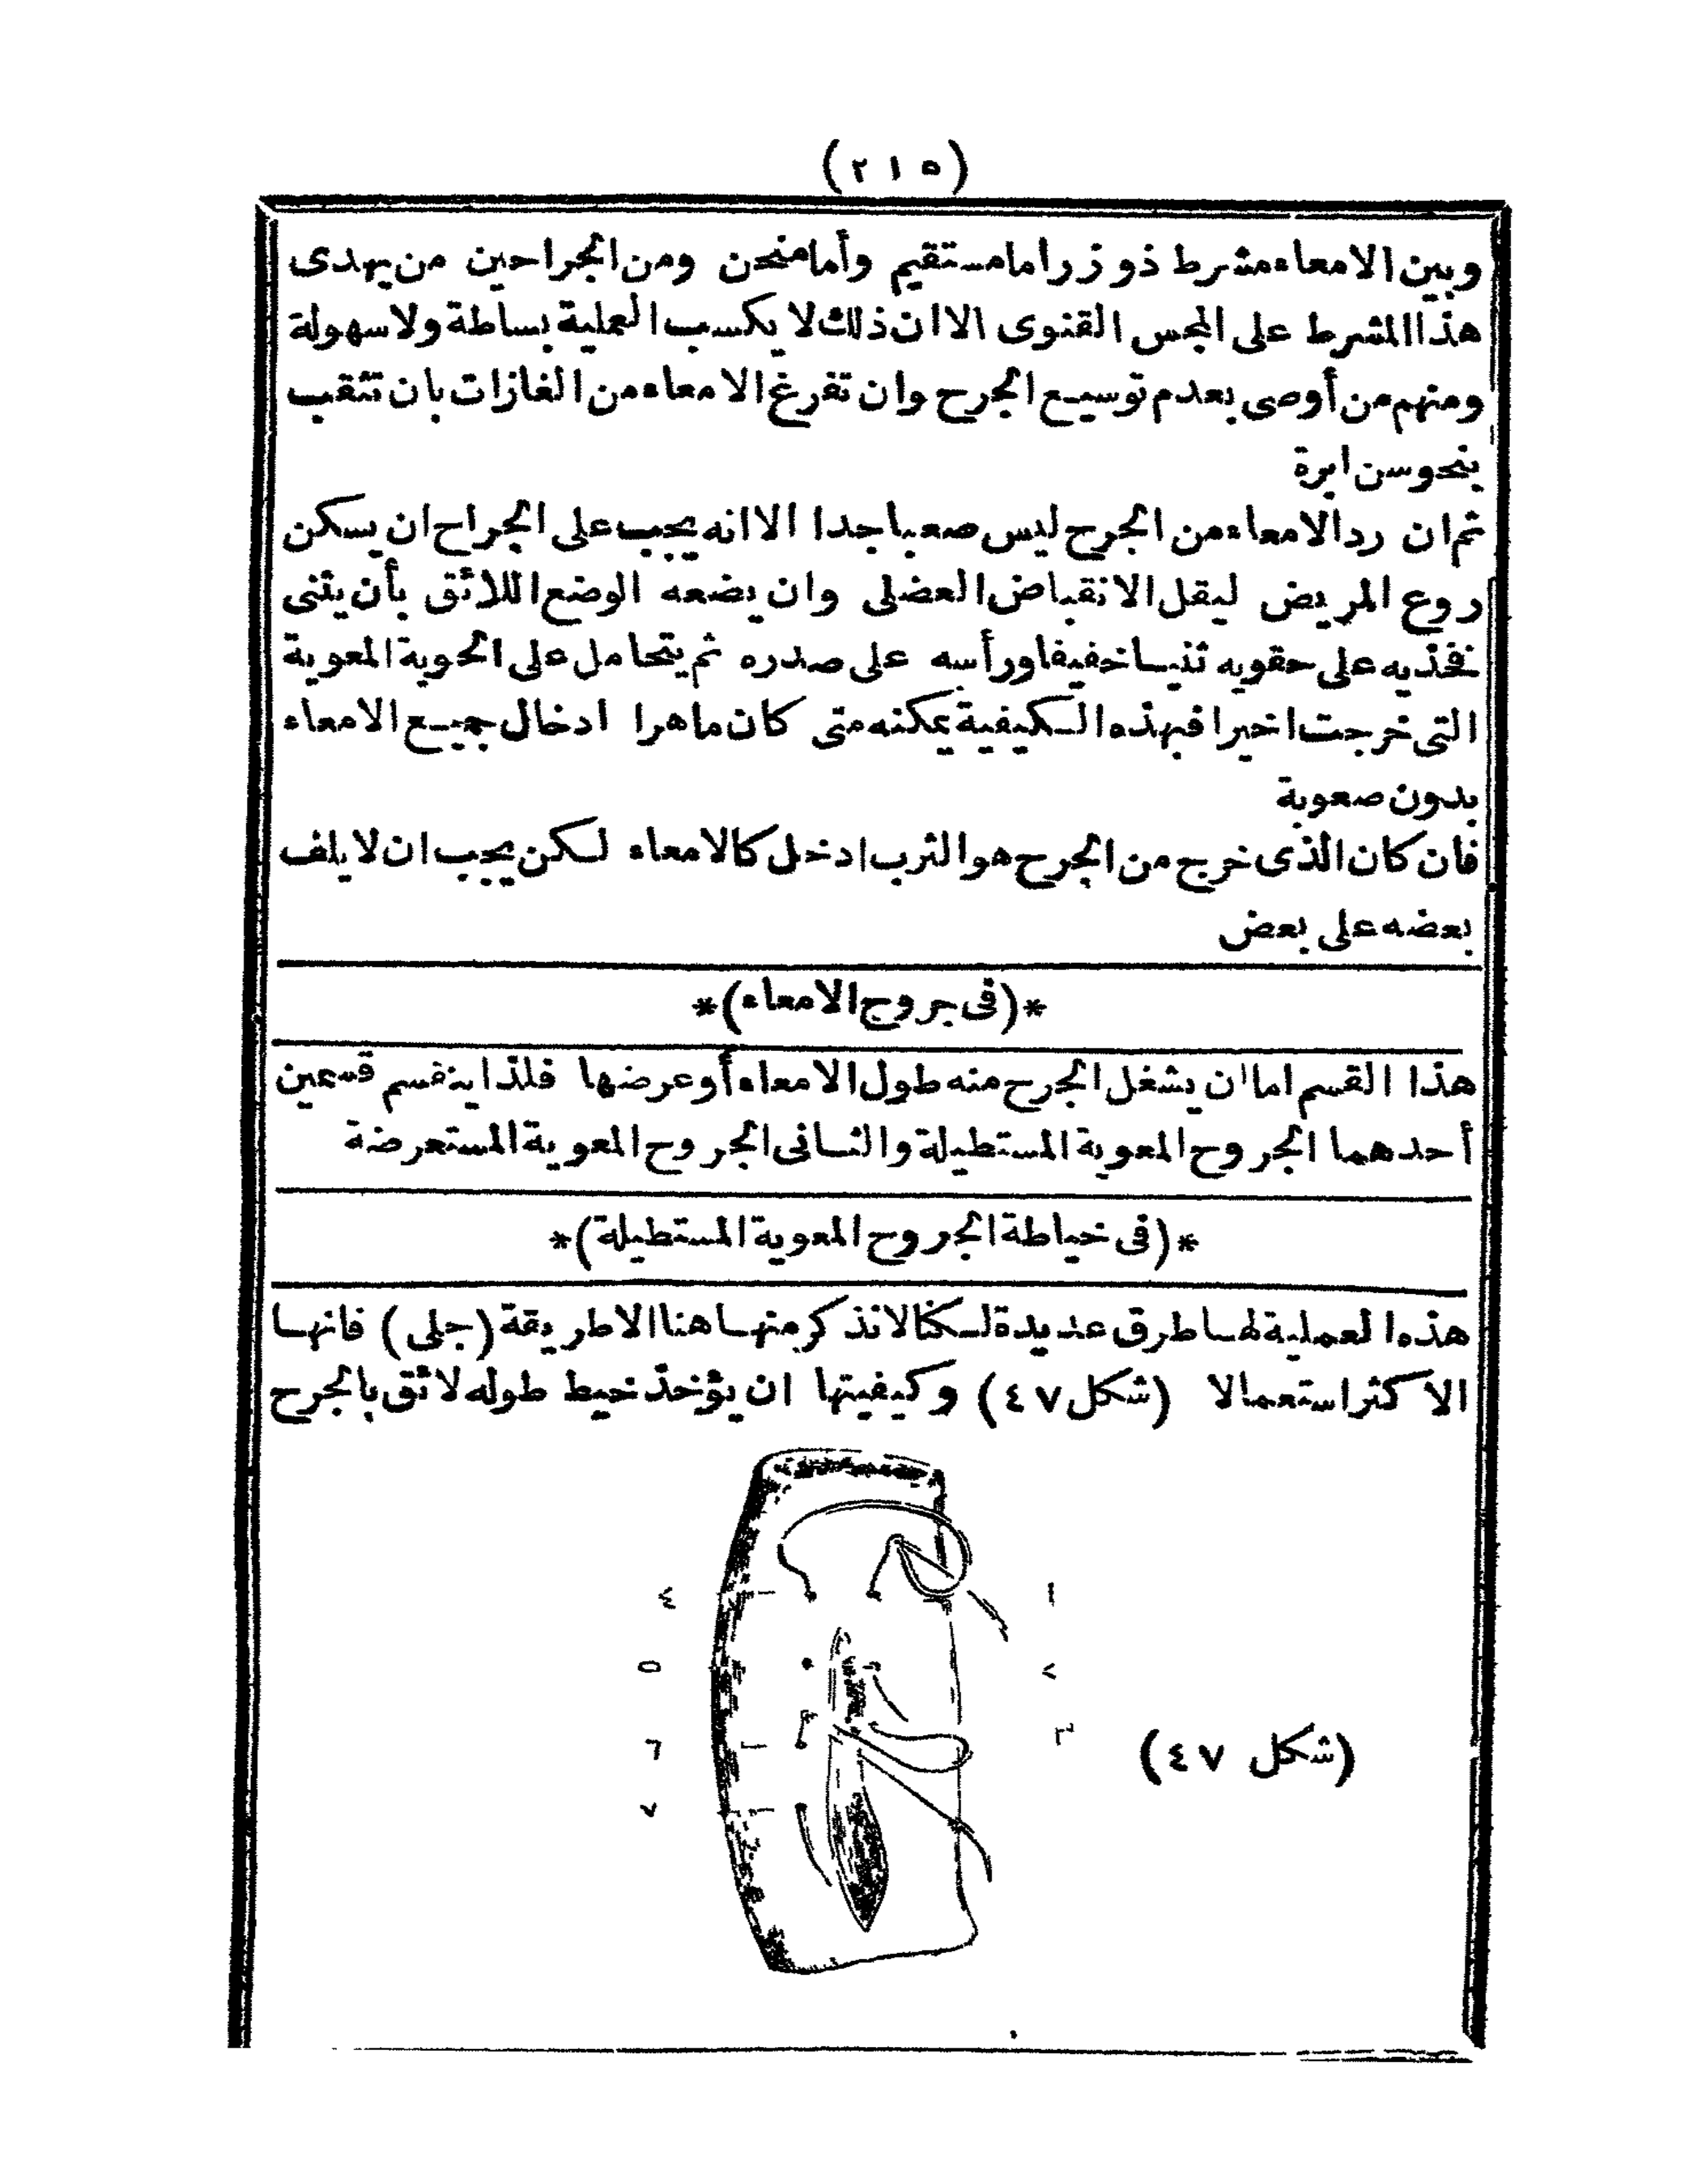 (٢١٥)
وبين الامعاء مشرط ذو زر اما مستقيم وأما منحن ومن الجراحين من يهدى
هذا المشرط على المجس القنوى الا ان ذلك لا يكسب العملية بساطة ولا سهولة
ومنهم من أوصى بعدم توسيع الجرح وان تفرغ الامعاء من الغازات بان تثقب
بنحو سن ابرة
ثم ان رد الامعاء من الجرح ليس صعبا جدا الا انه يجب على الجراح ان يسكن
روع المريض ليقل الانقباض العضلى وان يضعه الوضع اللائق بأن يثنى
فخذيه على حقويه ثنيا خفيفا ورأسه على صدره ثم يتحامل على الحوية المعوية
التى خرجت اخيرا فبهذه الكيفية يمكنه متى كان ماهرا ادخال جميع الامعاء
بدون صعوبة
فان كان الذى خرج من الجرح هو الثرب ادخل كالامعاء لكن يجب ان لا يلف
بعضه على بعض
*(فى جروح الامعاء)*
هذا القسم اما ان يشغل الجرح منه طول الامعاء أو عرضها فلذا ينقسم قسمين
أحدهما الجروح المعوية المستطيلة والثانى الجروح المعوية المستعرضة
*(فى خياطة الجروح المعوية المستطيلة)*
هذه العملية لها طرق عديدة لكنا لا نذكر منها هنا الا طريقة (جلى) فانها
الاكثر استعمالا (شكل ٤٧) وكيفيتها ان يؤخذ خيط طوله لائق بالجرح
١
٢
٣
٤
٥
٦
٧
(شكل ٤٧)